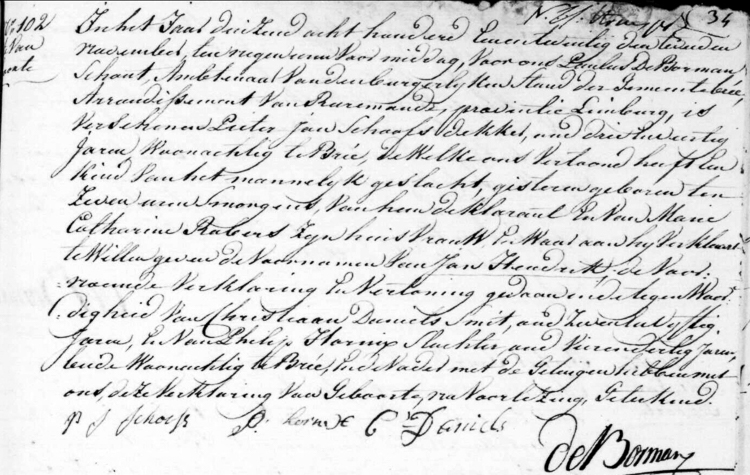 N° 102
Van
34
In het Jaar duizend acht honderd Eenentwintig den tweeden
november, ten negen uren Voor middag, Voor ons Paulus De Borman
Schout, Ambtenaar Van den burgerlyken Stand der Gemeente brée,
Arrondissement Van Ruremonde, provintie Limburg, is
Verschenen Pieter Jan Schoofs dekker, oud dreitweertig
Jaren Woonachtig te Brée, dewelke ons Vertoond heeft Een
kind Van het mannelyk geslacht, gisteren geboren ten
Zeven uren smorgens, Van hem deklarant En Van Marie
Catharine Rabers Zyn huis Vrouw En Waar aan hy Verklaart
te Willen geven de Voornamen Van Jan Hendrik de Voor-
noemde Verklaring En Vertoning gedaan in de tegen Woor-
digheid Van Christiaan Daniels Smit, oud Zevenen vyftig
Jaren, En Van Philip Hornix Slachter oud Vieren dertig Jaren
beide Woonachtig te Brée, En de Vader met de Getuigen hebben met
ons, deze Verklaring Van Geboorte, na Voorlezing, Geteekend.
p J Schoofs P. hornix C Daniels
de Borman